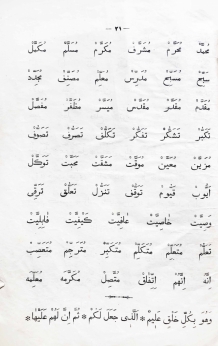 — ٢١ —
مُجَدَّدْ مُحَرَّمْ مُشَرَّفْ مُكَرَّمْ مُسَلَّمْ مُكَمَّلْ
مُسَبِّحْ مُدَرِّسْ مُعَلِّمْ مُصَنِّفْ مُجَدِّدْ
مُقَدَّرْ مُقَدَّمْ مُقَدَّسْ مُيَسَّرْ مُظَفَّرْ مُفَصَّلْ
تَكَبُّرْ تَشَكُّرْ تَفَكُّرْ تَكَلُّفْ تَصَرُّفْ تَصَوُّفْ
مُزَيَّنْ مُعَيَّنْ مُوَقَّتْ مَشَقَّتْ مَحَبَّتْ تَوَكُّلْ
أَيُّوبْ قَيُّومْ تَوَقُّفْ تَنَزُّلْ تَعَلُّقْ تَرَقِّى
وَصِيَّتْ خَاصِّيَّتْ عَافِيَّتْ كَيْفِيَّتْ قَابِلِيَّتْ
تَعَلُّمْ مُتَعَلِّمْ مُتَكَلِّمْ مُتَكَبِّرْ مُتَرَجِّمْ مُتَعَصِّبْ
اِنَّهُ اِنَّهُمْ اِتِّفَاقْ مُتَّصِلْ مُكَرَّمَهْ مُعَلِّمَهْ
وَهُوَ بِكُلِّ خَلْقٍ عَلِيمٌ * اَلَّذِى جَعَلَ لَكُمْ * ثُمَّ اِنَّ لَهُمْ عَلَيْهَا *